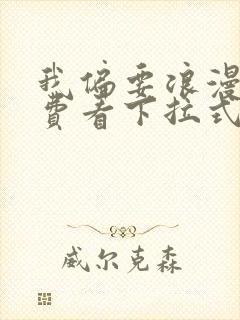 我偏要浪漫
費看下拉式
威尔克森